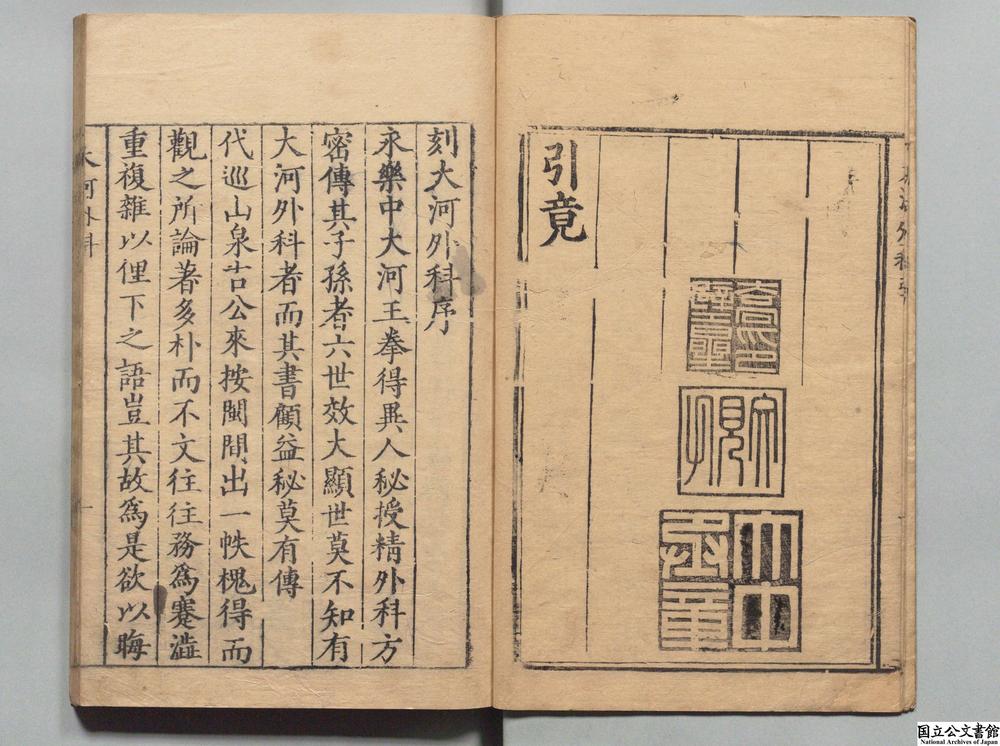 引竟
刻大河外科序
永樂中大河王拳得異人秘授精外科方
密傳其子孫者六世效大顯世莫不知有
大河外科者而其書顧益秘莫有傳
代巡山泉吉公來按閩間出一帙槐得而
觀之所論著多朴而不文往往務為蹇澁
重複雜以俚下之語豈其故為是欲以晦
大河外科
一
国立公文書館
National Archives of Japan